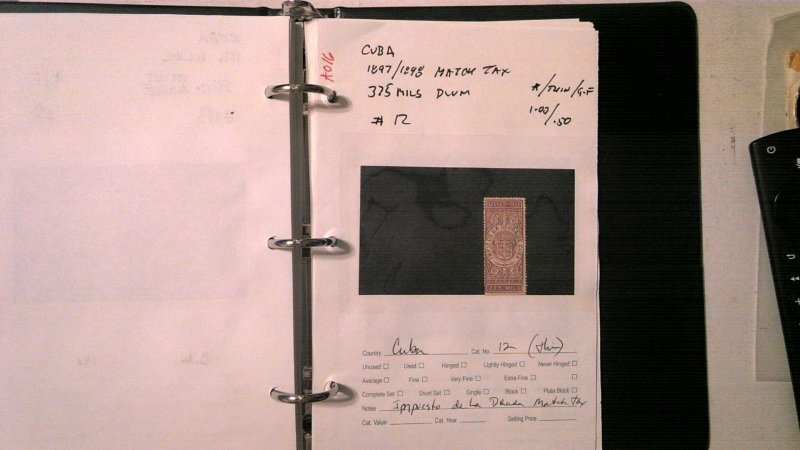 A016
CUBA
1897/1898 MATCH TAX
375 MILS PLUM
*/THIN/G-F
1.00/.50
# 12
375 MILS
Country Cuba Cat. No. 12 (thin)
Unused Used Hinged Lightly Hinged Never Hinged
Average Fine Very Fine Extra Fine
Complete Set Short Set Single Block Plate Block
Notes Impuesto de La Deuda Match Tax
Cat. Value Cat. Year Selling Price